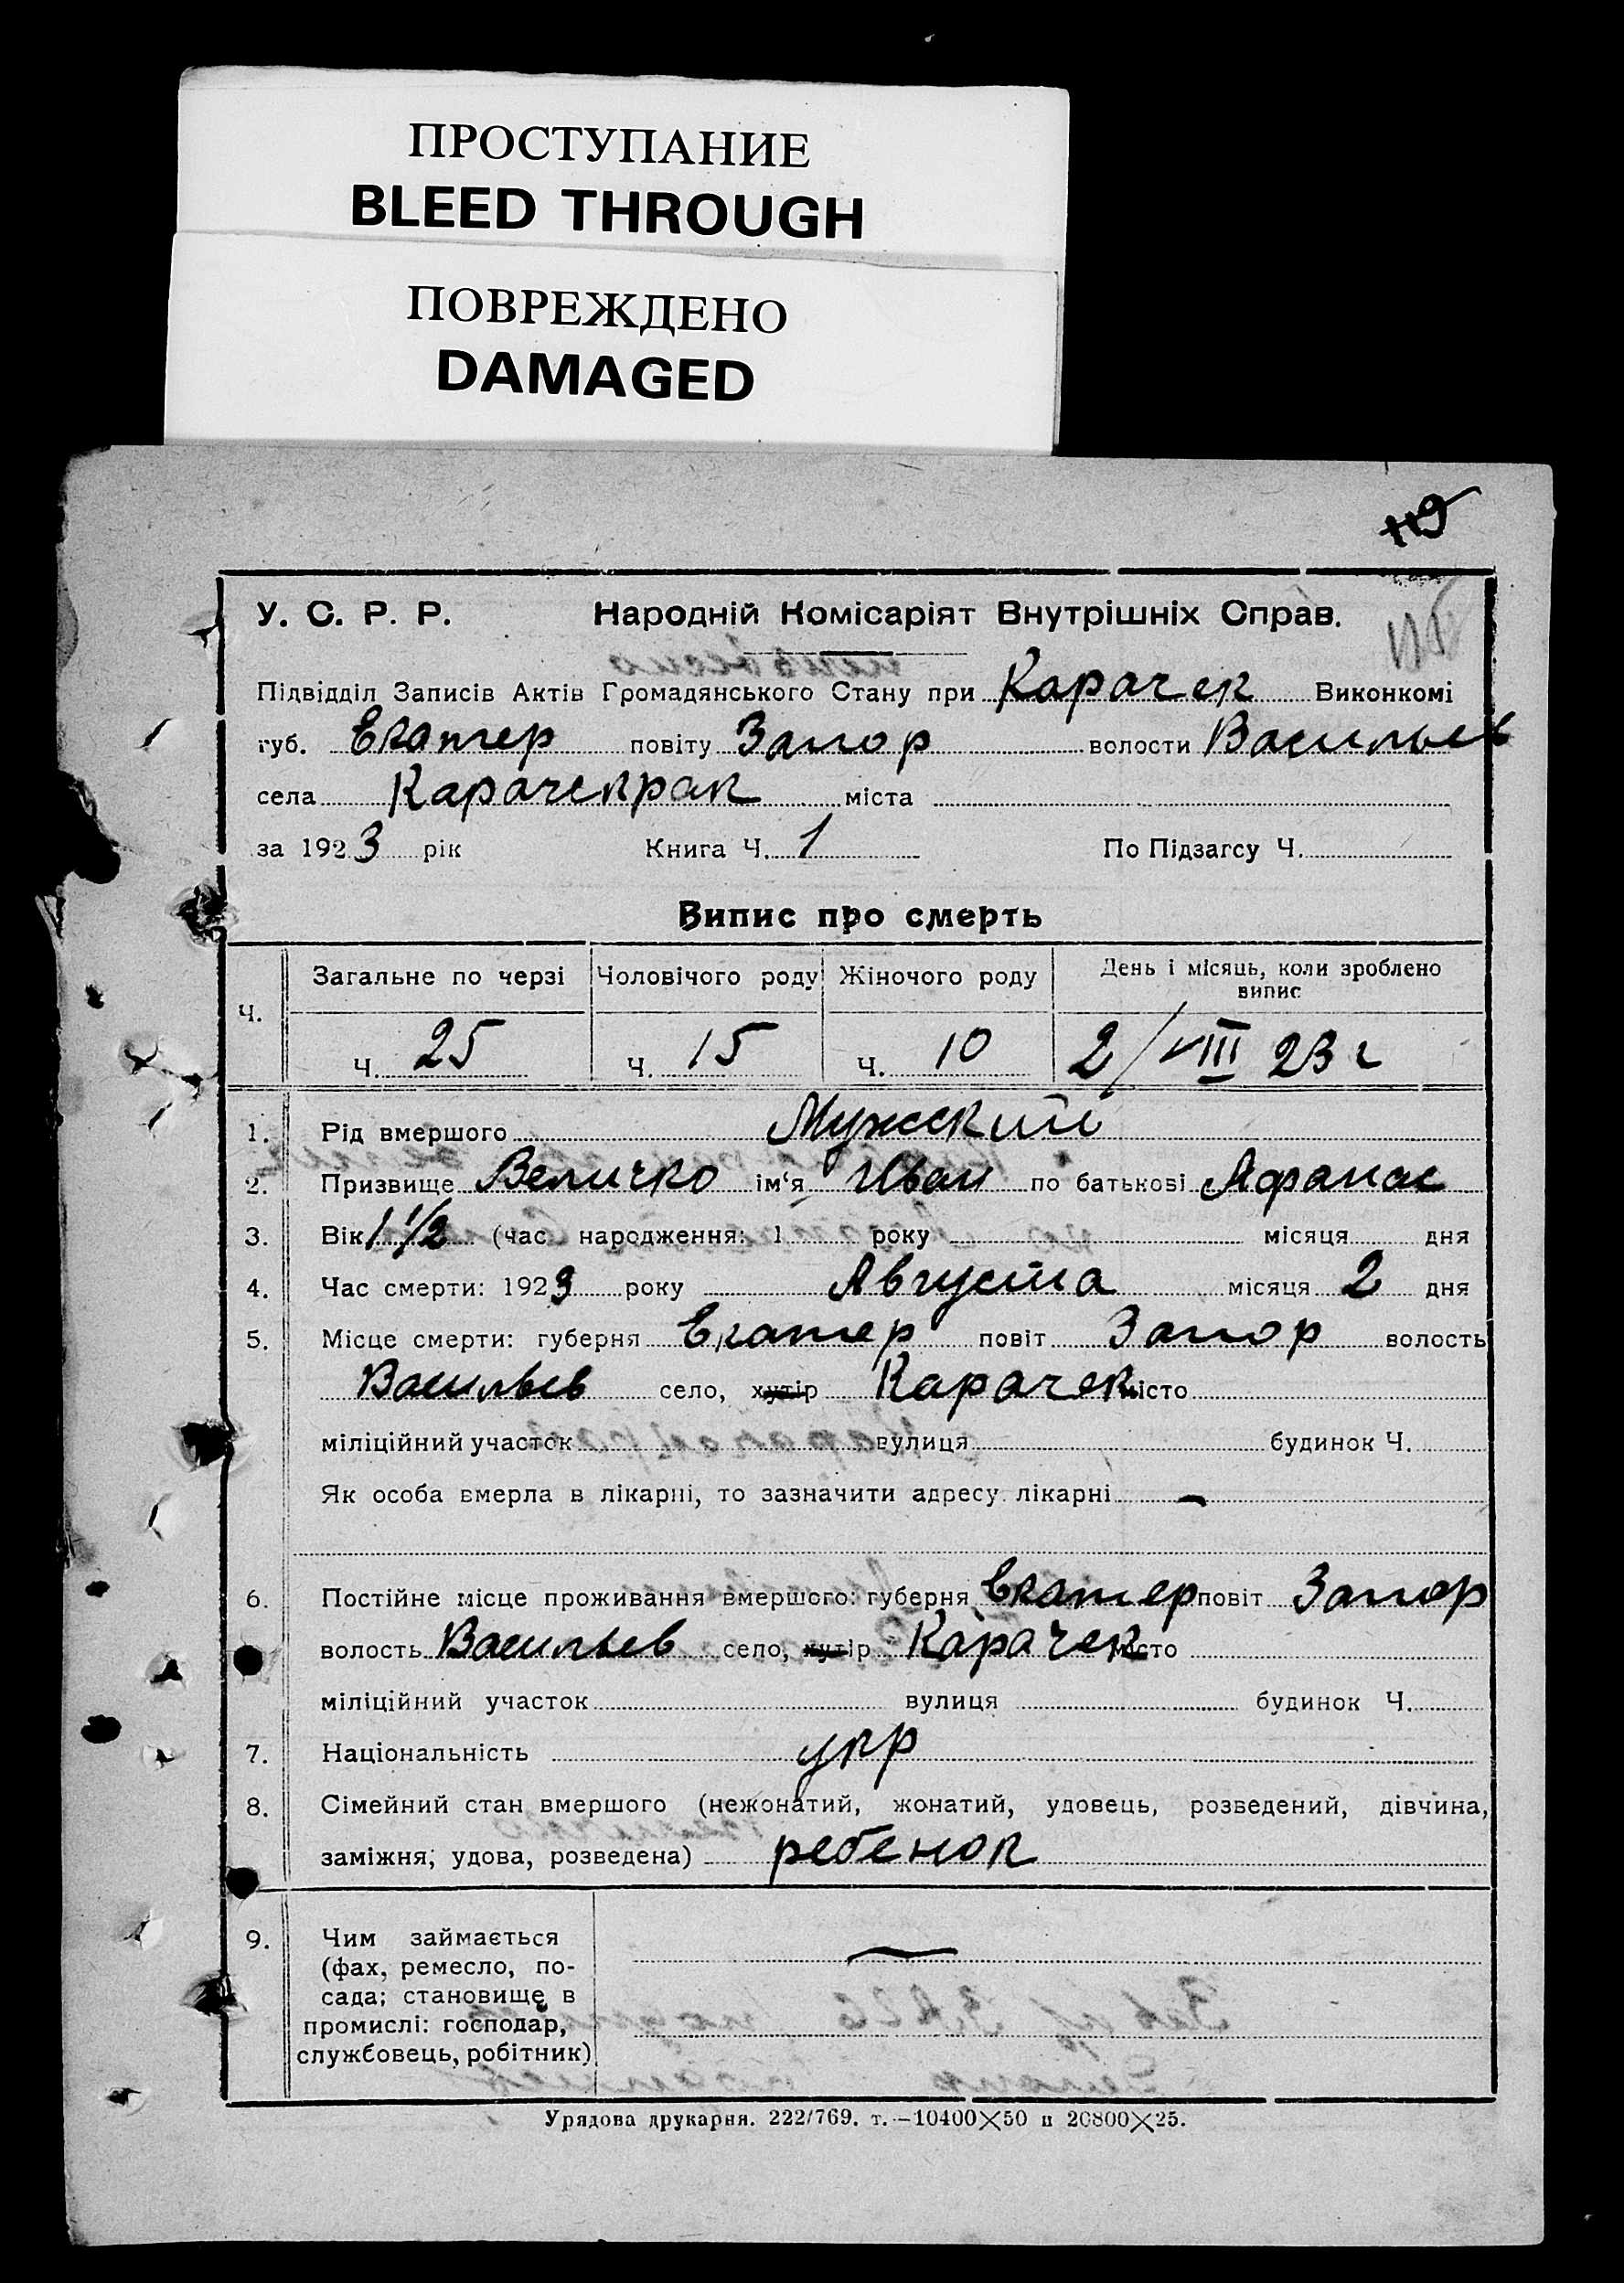 ПРОСТУПАНИЕ
BLEED THROUGH
ПОВРЕЖДЕНО
DAMAGED
119
У. С. Р. Р. Народній Комісаріят Внутрішніх Справ.
Підвідділ Записів Актів Громадянського Стану при Карачек Виконкомі
губ. Екатер повіту Запор волости Васильев
села Карачекрак міста
за 1923 рік Книга Ч. 1 По Підзагсу Ч.
Випис про смерть
Ч. Загальне по черзі Чоловічого роду Жіночого роду День і місяць, коли зроблено випис
Ч. 25 Ч. 15 Ч. 10 2/VIII 23 г
1. Рід вмершого Мужский
2. Призвище Величко ім'я Иван по батькові Афанас
3. Вік 1 1/2 (час народження: 1 року місяця дня
4. Час смерти: 1923 року Августа місяця 2 дня
5. Місце смерти: губерня Екатер повіт Запор волость
Васильев село, хутір Карачек місто
міліційний участок вулиця будинок Ч.
Як особа вмерла в лікарні, то зазначити адресу лікарні —
6. Постійне місце проживання вмершого: губерня Екатер повіт Запор
волость Васильев село, хутір Карачек місто
міліційний участок вулиця будинок Ч.
7. Національність укр
8. Сімейний стан вмершого (нежонатий, жонатий, удовець, розведений, дівчина,
заміжня; удова, розведена) ребенок
9. Чим займається —
(фах, ремесло, по-
сада; становище в
промислі: господар,
службовець, робітник)
Урядова друкарня. 222/769. т.—10400×50 п 20800×25.